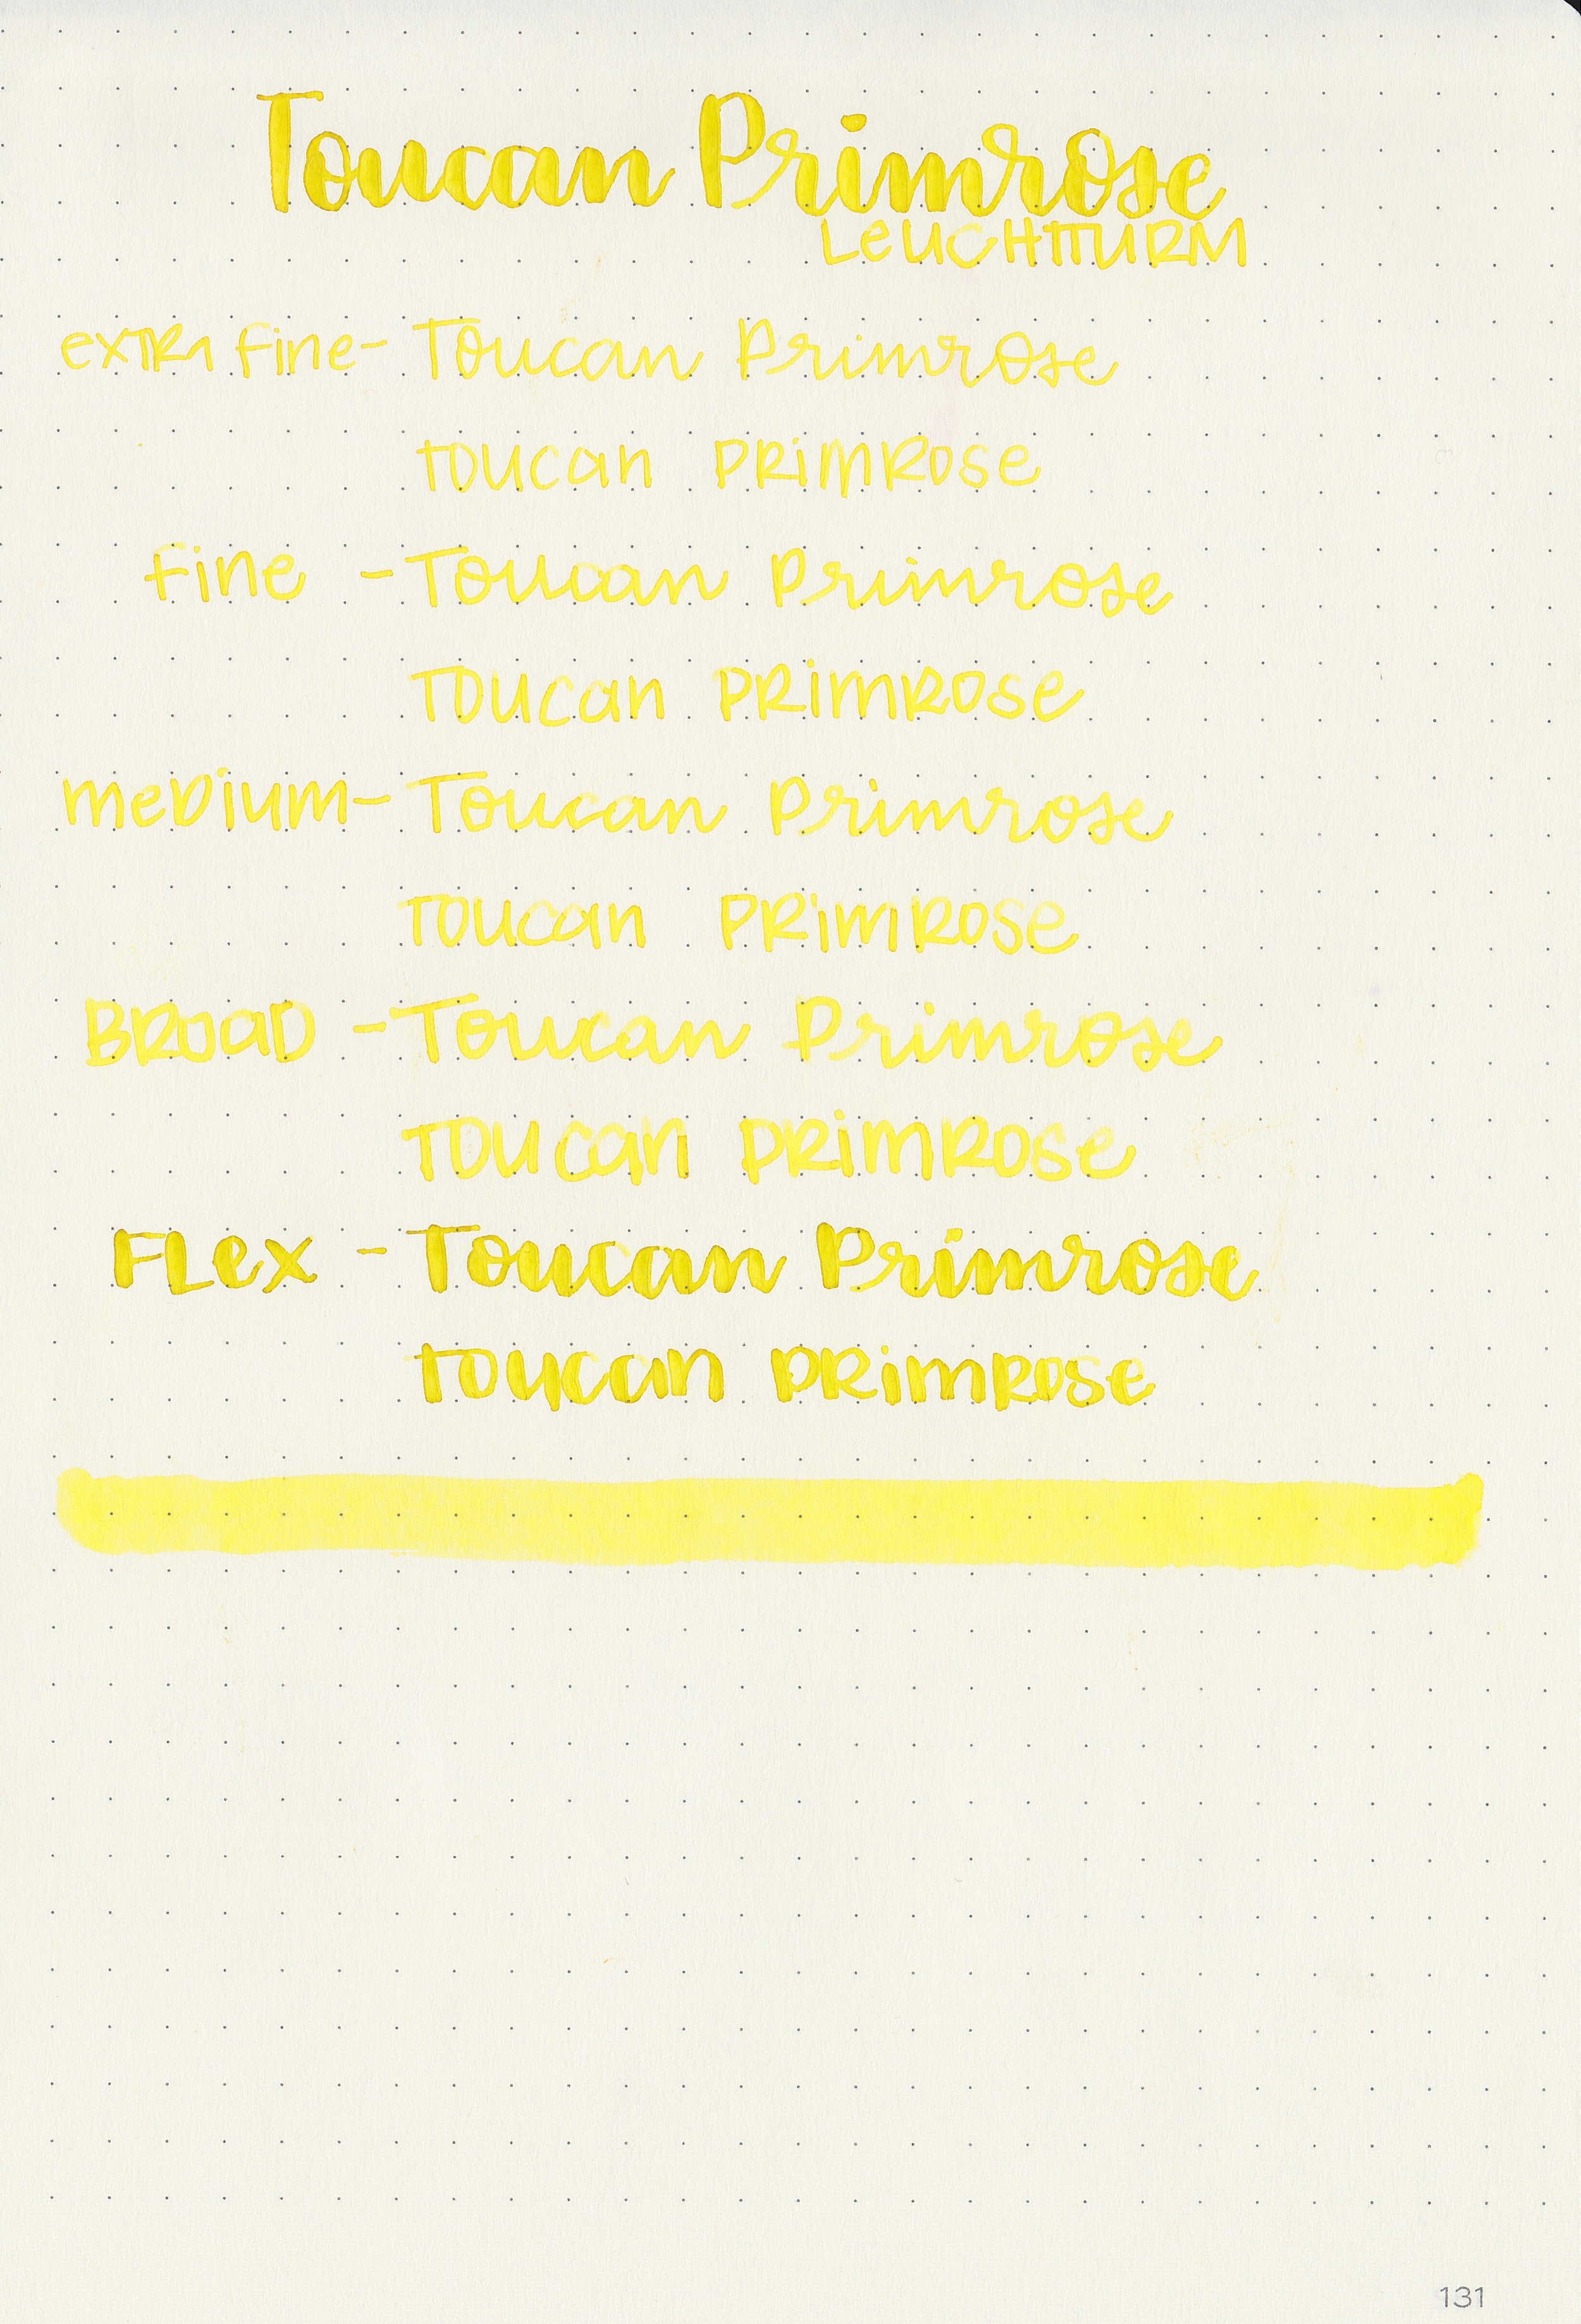 Toucan Primrose
LeUCHTTURM
exTRA fine- Toucan Primrose
toucan PRimROse
fine - Toucan Primrose
Toucan PRimROse
meDium- Toucan Primrose
Toucan PRimROse
BROaD - Toucan Primrose
Toucan PRimROse
FLex - Toucan Primrose
toucan PRimROse
131